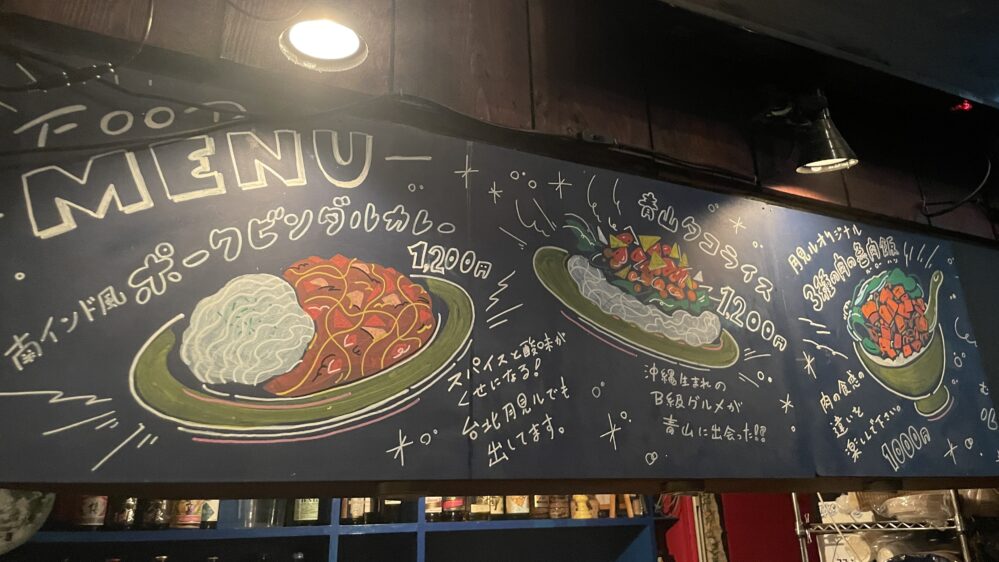 FOOD
MENU
南インド風
ポークビンダルカレー
1,200円
スパイスと酸味が
くせになる!
台北月見ルでも
出してます。
青山タコライス
1,200円
沖縄生まれの
B級グルメが
青山に出会った!!
月見ルオリジナル
3種の肉の魯肉飯
肉の食感の
違いを
楽しんで下さい。
1000円